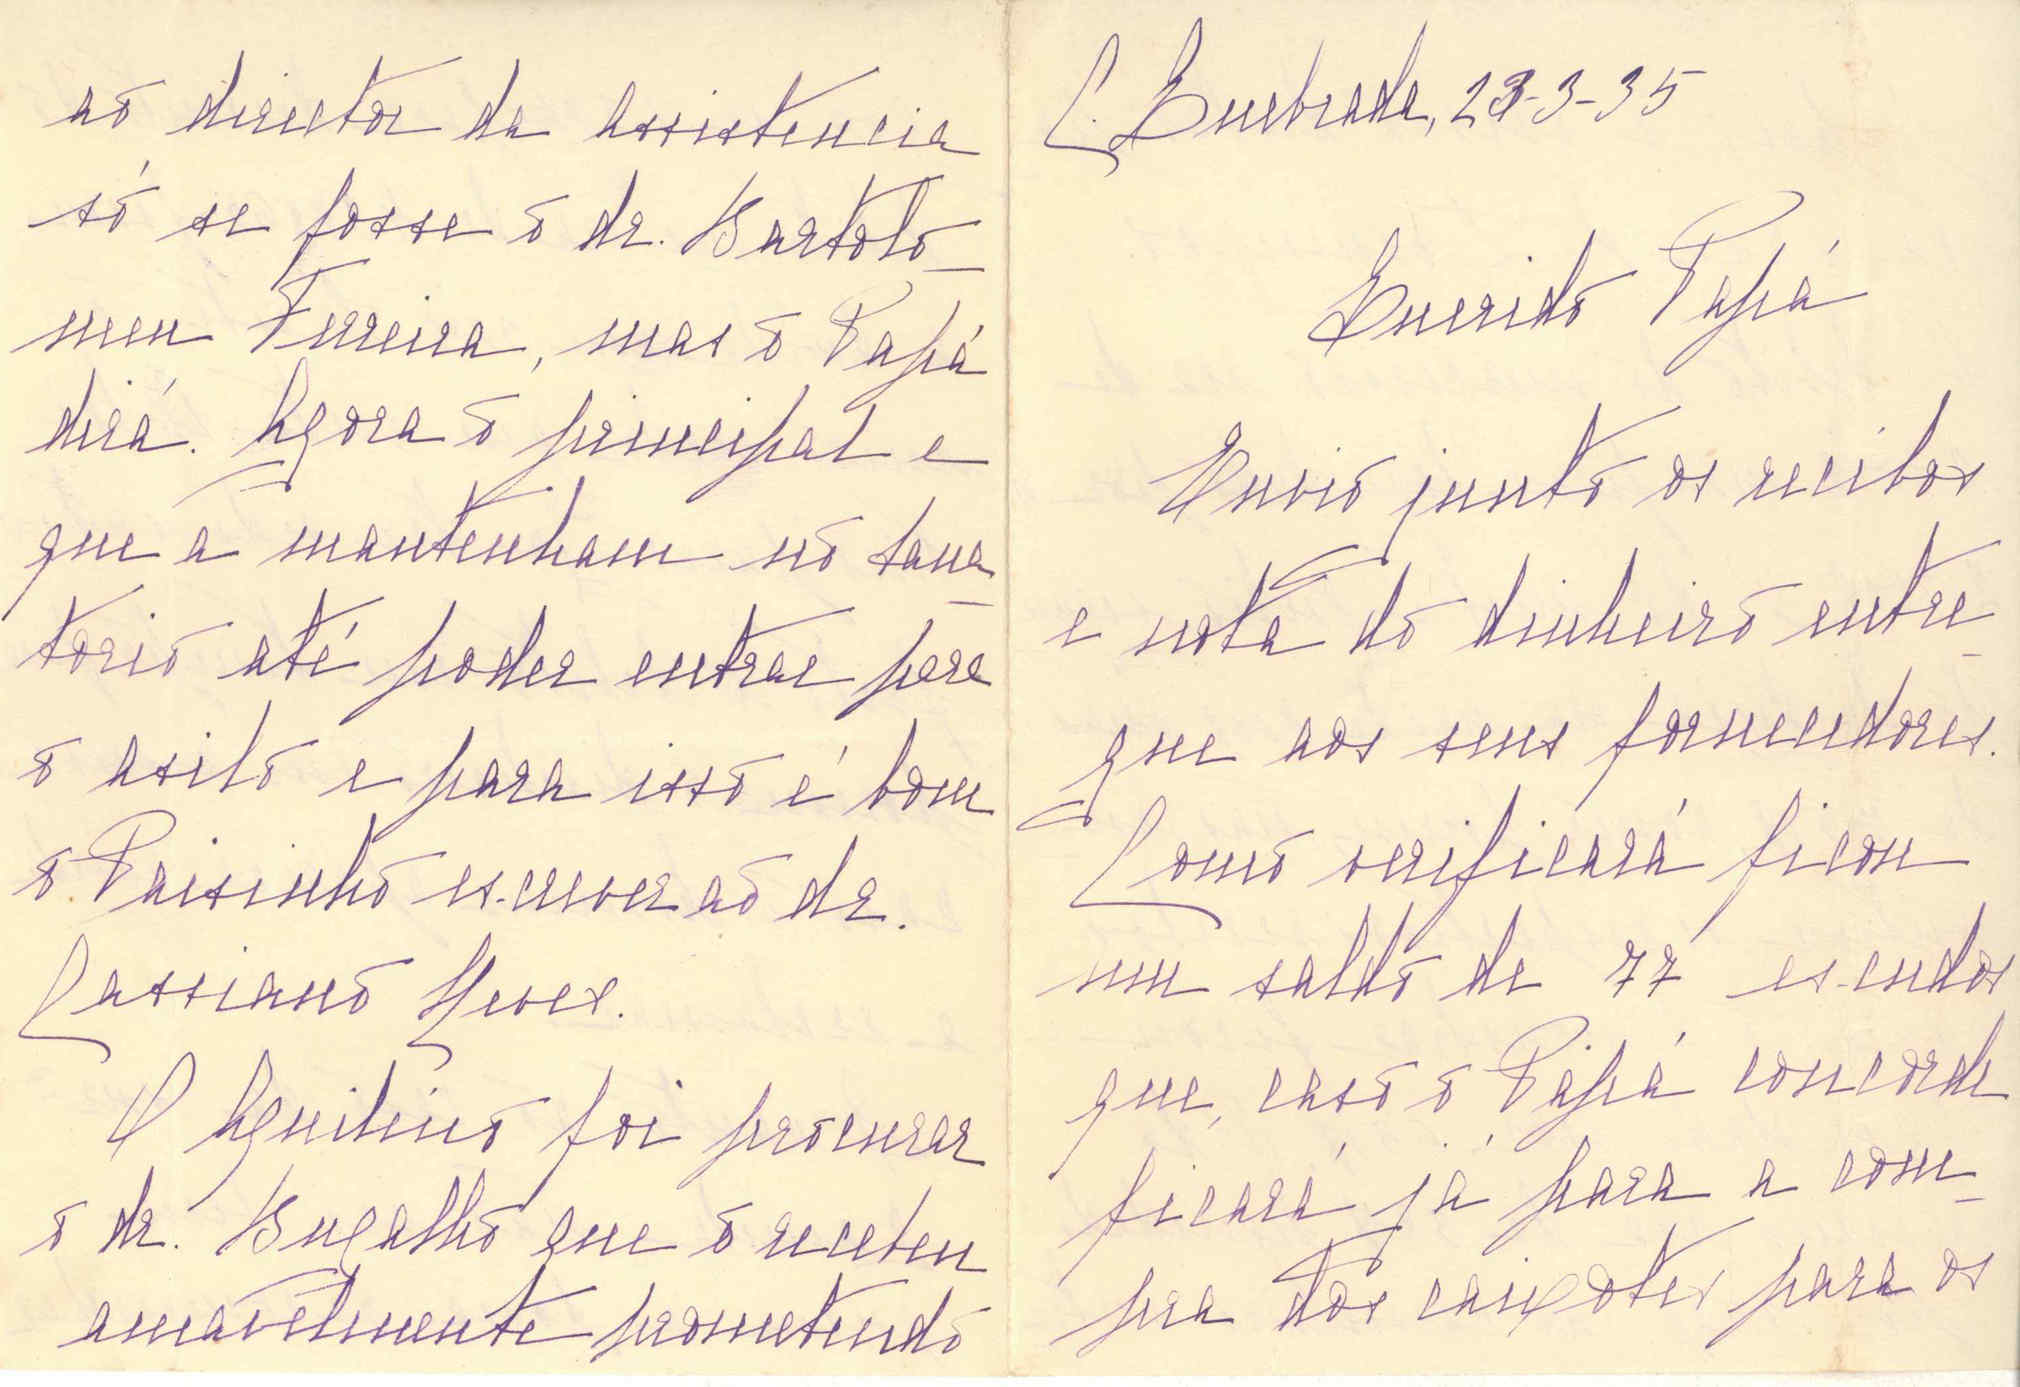 C. Quebrada, 23-3-35
Querido Papá
Envio junto os recibos
e nota do dinheiro entre-
gue aos seus fornecedores.
Como verificará ficou
um saldo de 77 escudos
que, caso o Papá concorde
ficará já para a com-
pra dos caixotes para os
ao director da Assistencia
só se fosse o dr. Bartolo-
meu Ferreira, mas o Papá
dirá. Agora o principal e
que a mantenham no sana-
torio até poder entrar para
o asilo e para isso é bom
o Paisinho escrever ao dr.
Cassiano Neves.
O Aquilino foi procurar
o dr. Bugalho que o recebeu
amavelmente prometendo